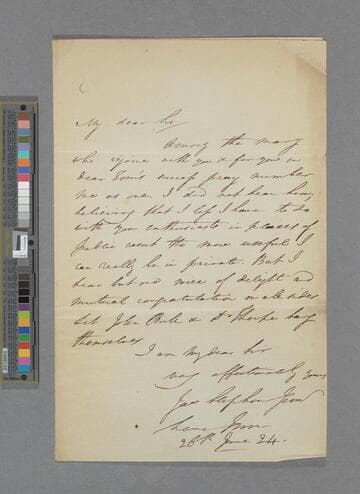 My dear Sir
Among the many
who rejoice with you & for you in
dear Tom's success pray number
me as one. I did not hear him,
believing that I less I have to do
with you enthusiasts in places of
public resort the more useful I
can really be in private. But I
hear but one voice of delight and
mutual congratulation on all sides
let John Bull & Dr Thorpe hang
themselves
I am My dear Sir
very affectionately yours
Jas Stephen
26th June 24.